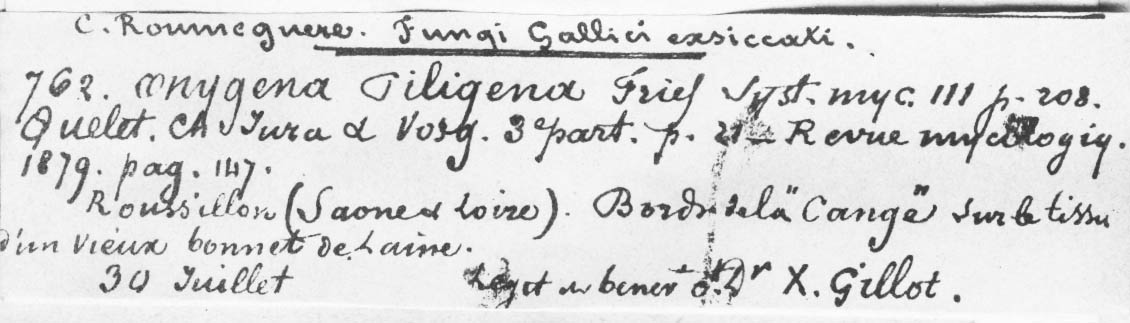 C. Roumeguere. Fungi Gallici exsiccati.
762. Onygena Piligena Fries Syst. myc. III p. 208.
Quelet. Ch. Jura & Vosg. 3e part. p. 21 — Revue mycologiq.
1879. pag. 147.
Roussillon (Saone & Loire). Bords de la "Cange" sur le tissu
d'un vieux bonnet de Laine.
30 Juillet Legit Dr X. Gillot.